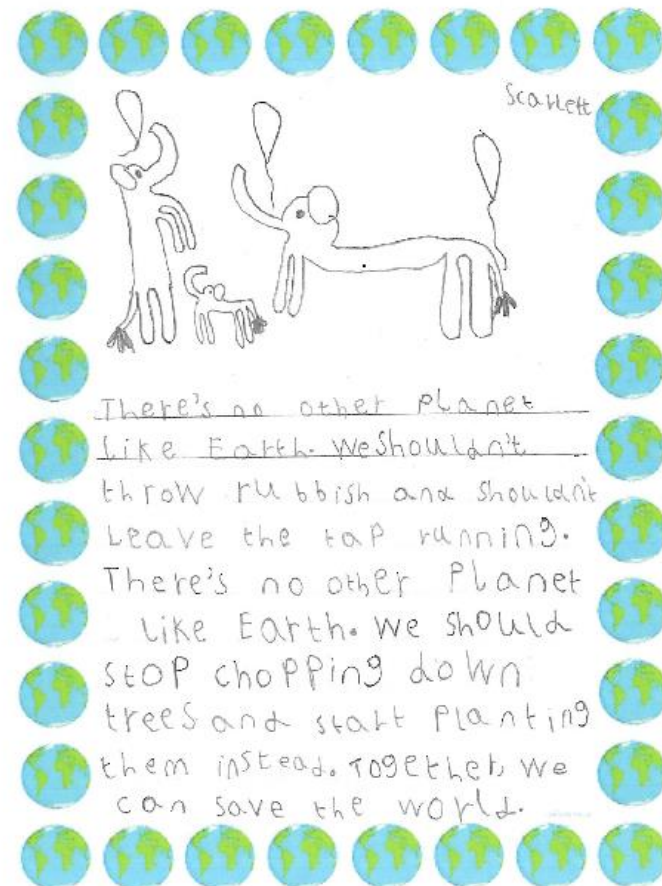 Scarlett
There's no other Planet
Like Earth. We Shouldn't
throw rubbish and shouldn't
Leave the tap running.
There's no other Planet
Like Earth. We Should
stop chopping down
trees and start Planting
them instead. Together, we
can save the world.